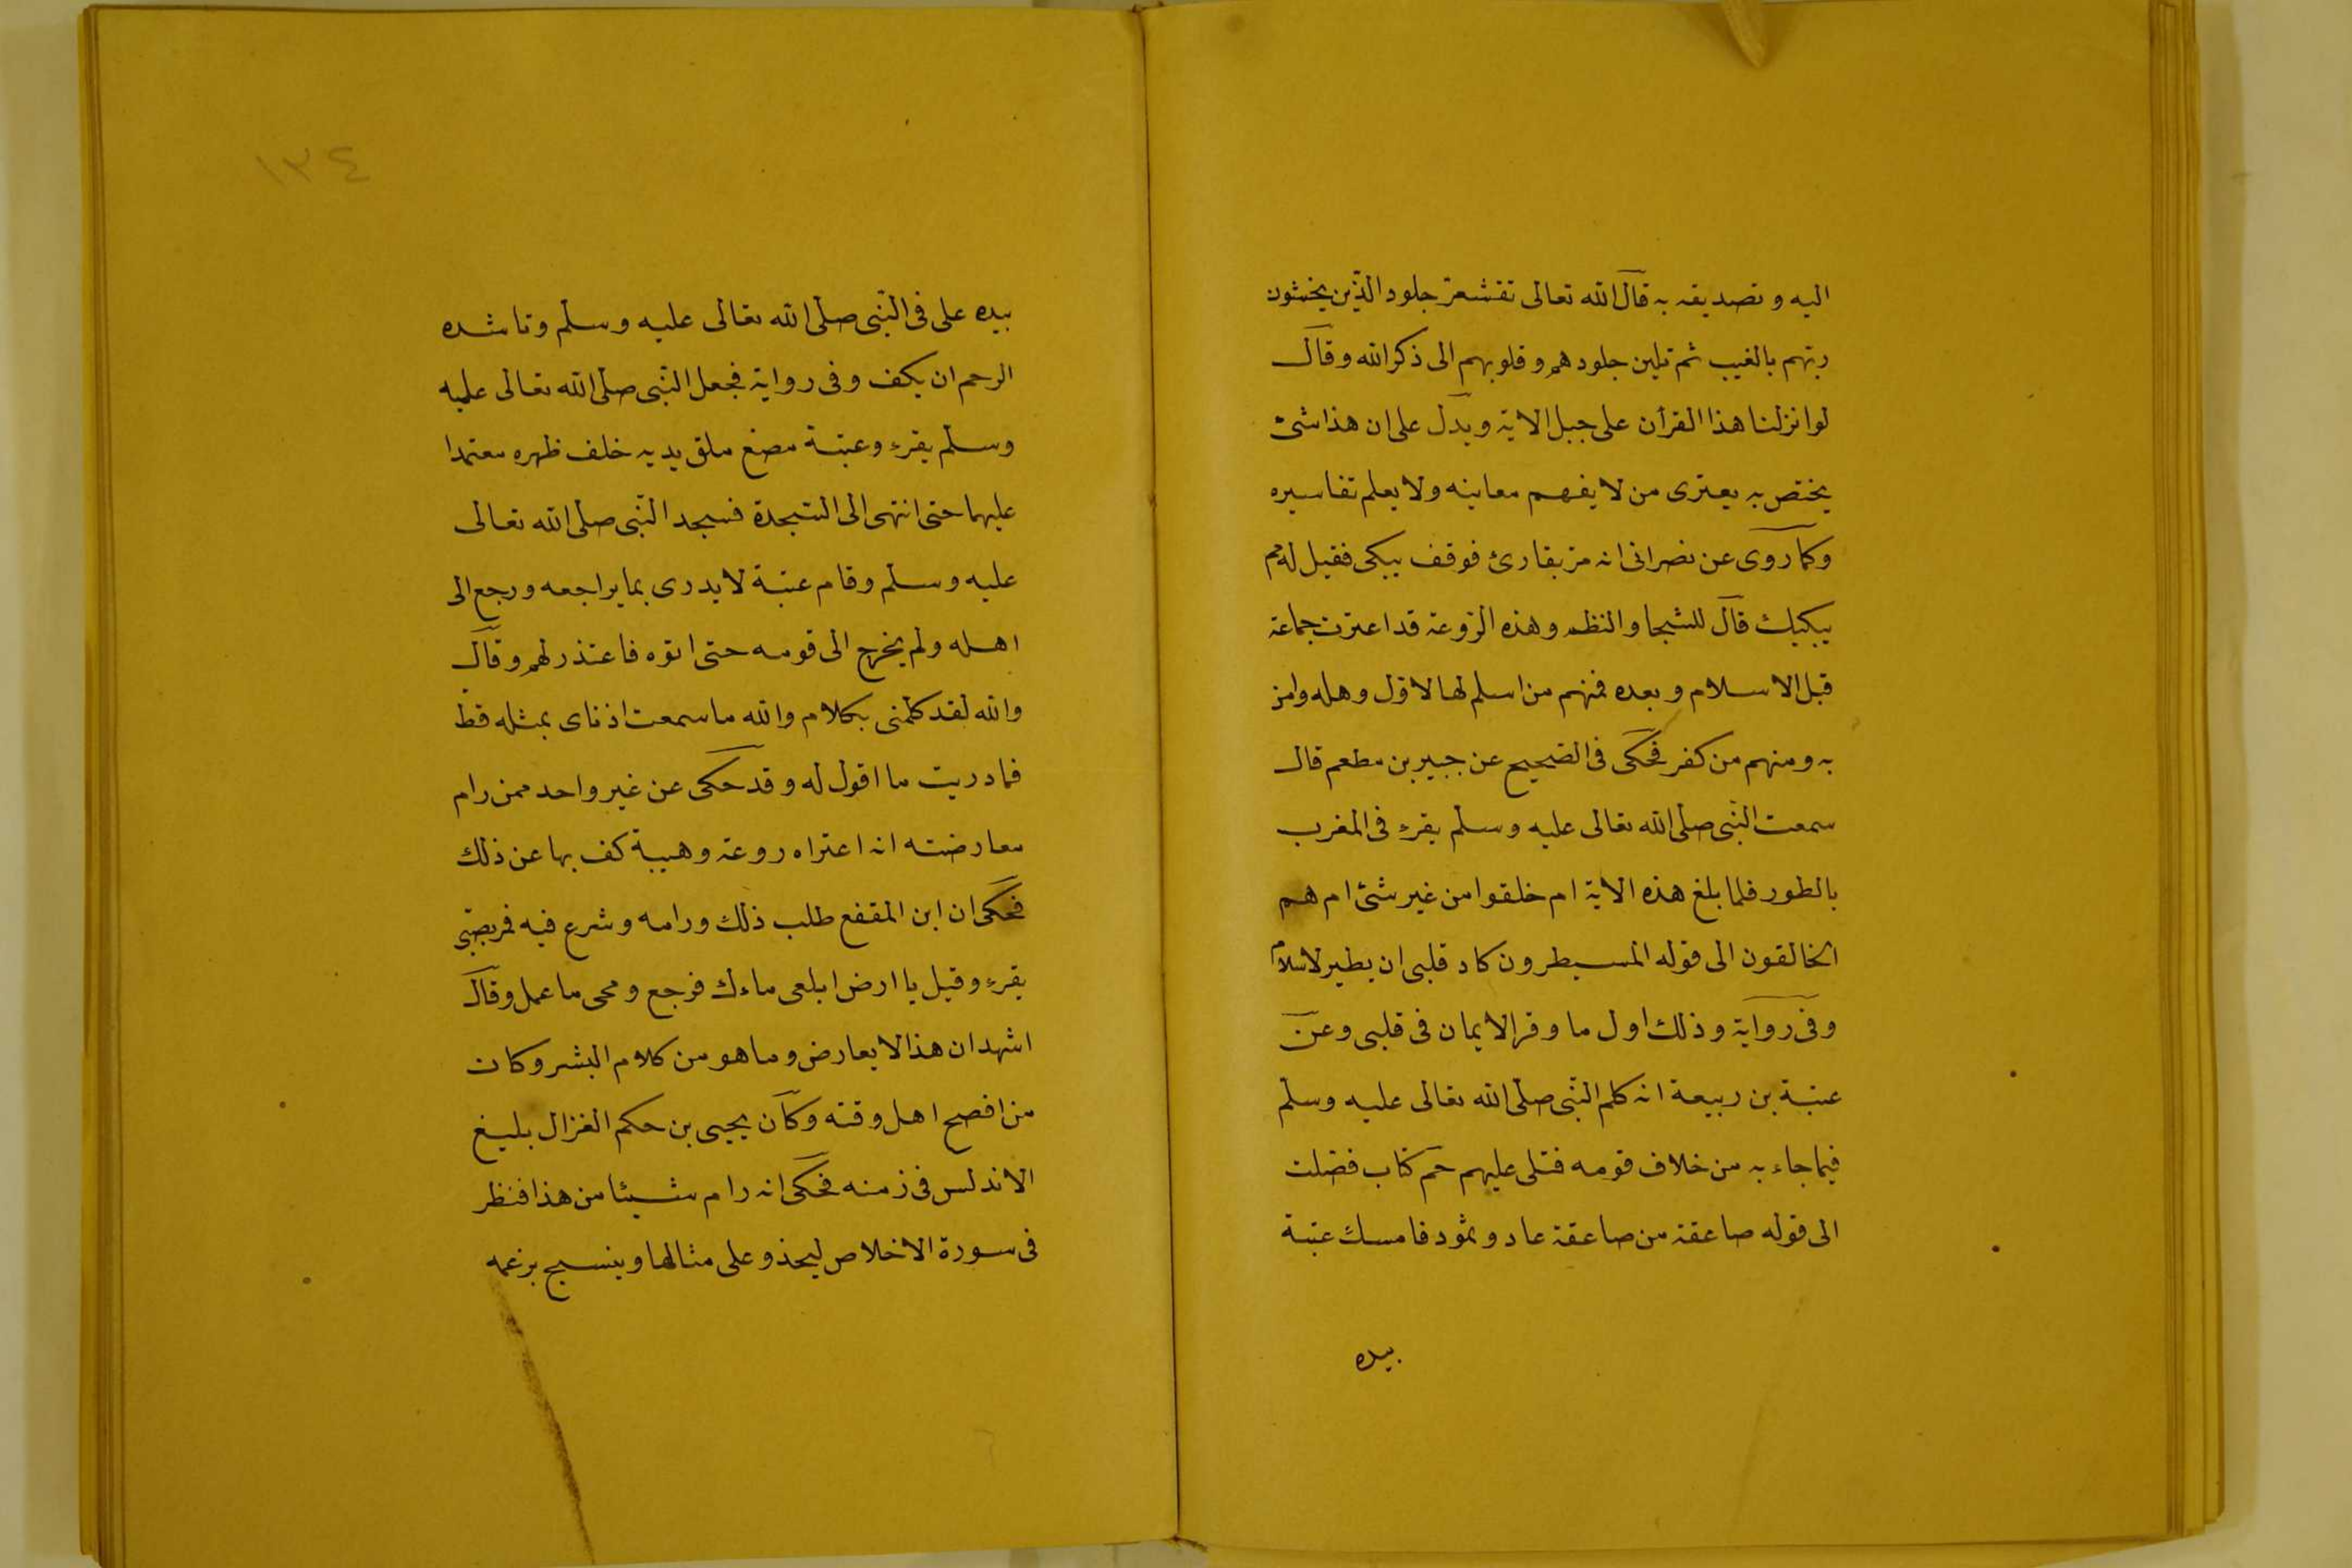 اليه وتصديقه به قال الله تعالى تقشعر جلود الذّين يخشون
ربّهم بالغيب ثم تلين جلودهم وقلوبهم الى ذكر الله وقال
لو انزلنا هذا القرأن على جبل الاية ويدل على ان هذا شئ
يختص به يعترى من لا يفهم معاينه ولا يعلم تفاسيره
وكما روى عن نصرانى انه مرّ بقارئ فوقف يبكى فقيل له مم
يبكيك قال للشجا والنظم وهذه الرّوعة قد اعترت جماعة
قبل الاسلام وبعده فمنهم من اسلم لها لاوّل وهله وامن
به ومنهم من كفر فحكى فى الصّحيح عن جبير بن مطعم قال
سمعت النّبى صلّى الله تعالى عليه وسلّم يقرء فى المغرب
بالطور فلما بلغ هذه الاية ام خلقوا من غير شئ ام هم
الخالقون الى قوله المسيطرون كاد قلبى ان يطير لاسلام
وفى رواية وذلك اول ما وقر الايمان فى قلبى وعن
عتبة بن ربيعة انه كلم النّبى صلّى الله تعالى عليه وسلّم
فيما جاء به من خلاف قومه فتلى عليهم حم كتاب فصّلت
الى قوله صاعقة من صاعقة عاد وثمود فامسك عتبة
بيده
١٣٤
بيده على فى النّبى صلّى الله تعالى عليه وسلّم وناشده
الرحم ان يكف وفى رواية فجعل النّبى صلّى الله تعالى عليه
وسلّم يقرء وعتبة مصغ ملق يديه خلف ظهره معتمدا
عليهما حتى انتهى الى السّجدة فسجد النّبى صلّى الله تعالى
عليه وسلّم وقام عتبة لا يدرى بما يراجعه ورجع الى
اهله ولم يخرج الى قومه حتى اتوه فاعتذر لهم وقال
والله لقد كلّمنى بكلام والله ما سمعت اذناى بمثله قطّ
فما دريت ما اقول له وقد حكى عن غير واحد ممن رام
معارضته انه اعتراه روعة وهيبة كف بها عن ذلك
فحكى ان ابن المقفع طلب ذلك ورامه وشرع فيه فمر بصبّى
يقرء وقيل يا ارض ابلعى ماءك فرجع ومحى ما عمل وقال
اشهد ان هذا لا يعارض وما هو من كلام البشر وكان
من افصح اهل وقته وكان يحيى بن حكم الغزال بليغ
الاندلس فى زمنه فحكى انه رام شيئا من هذا فنظر
فى سورة الاخلاص ليحذو على مثالها وينسج بزعمه